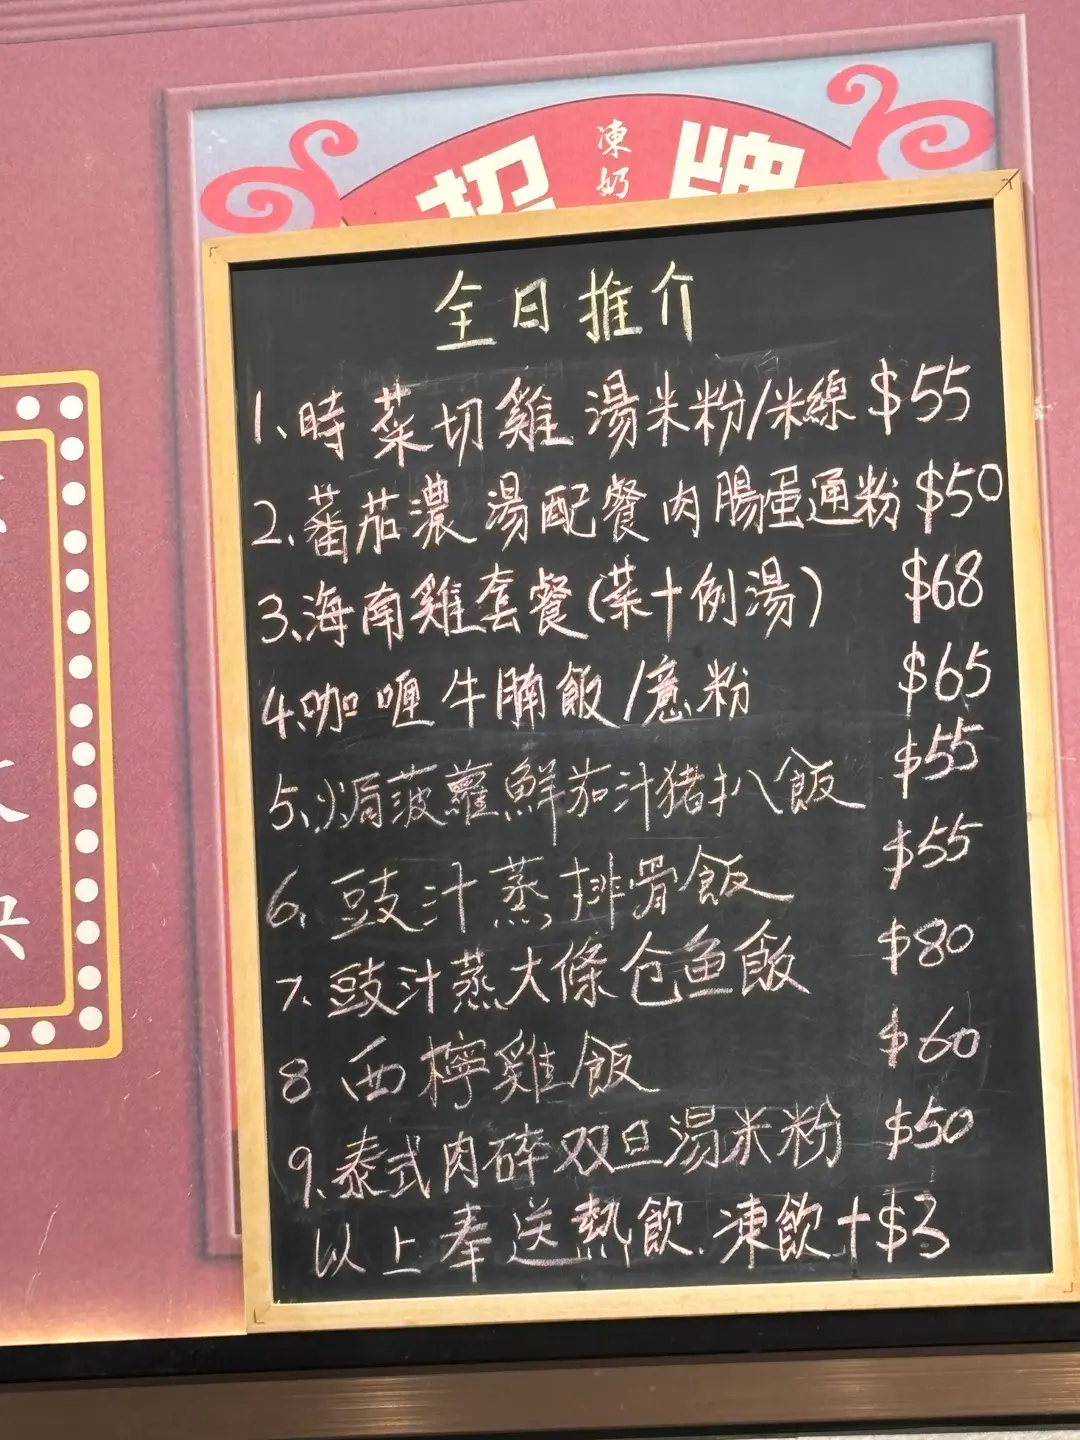 招 凍奶 牌
全日推介
1、時菜切雞湯米粉/米線 $55
2、蕃茄濃湯配餐肉腸蛋通粉 $50
3、海南雞套餐(菜十例湯) $68
4、咖喱牛腩飯/意粉 $65
5、焗菠蘿鮮茄汁豬扒飯 $55
6、豉汁蒸排骨飯 $55
7、豉汁蒸大條仓鱼飯 $80
8 西檸雞飯 $60
9、泰式肉碎双旦湯米粉 $50
以上奉送熱飲.凍飲+$3